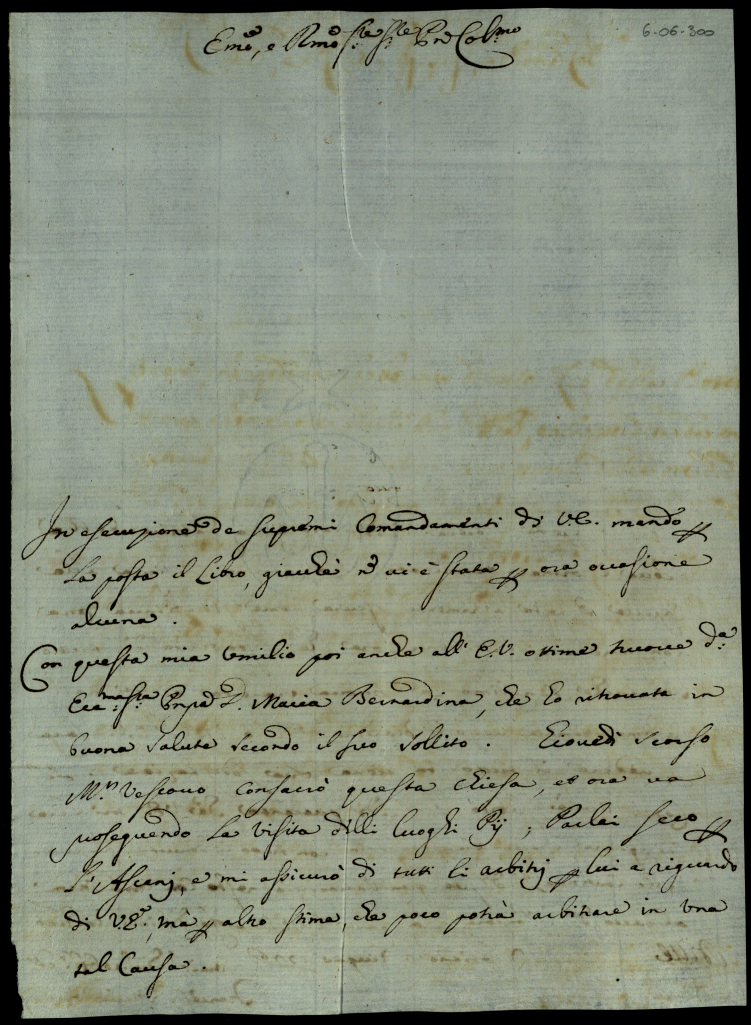 6-06-300
Emo, e Rmo Sre Sre Pne Colmo
In esecuzione de supremi Comandamenti di V.E. mando p
la posta il Libro, giacchè nō vi è stata p ora occasione
alcuna.
Con questa mia umilio poi anche all' E.V. ottime nuove da
Ecc.ma Sra Pnpa D. Maria Bernardina, che ho ritrovata in
buona salute secondo il suo sollito. Giovedì scorso
M.r Vescovo consacrò questa Chiesa, et ora va
proseguendo la visita dlli luoghi Pij; Parlai seco p
l'Ascenj, e mi assicurò di tutti li arbitrij p lui a riguardo
di V.E., mà p altro stima, che poco potrà arbitrare in una
tal Causa.